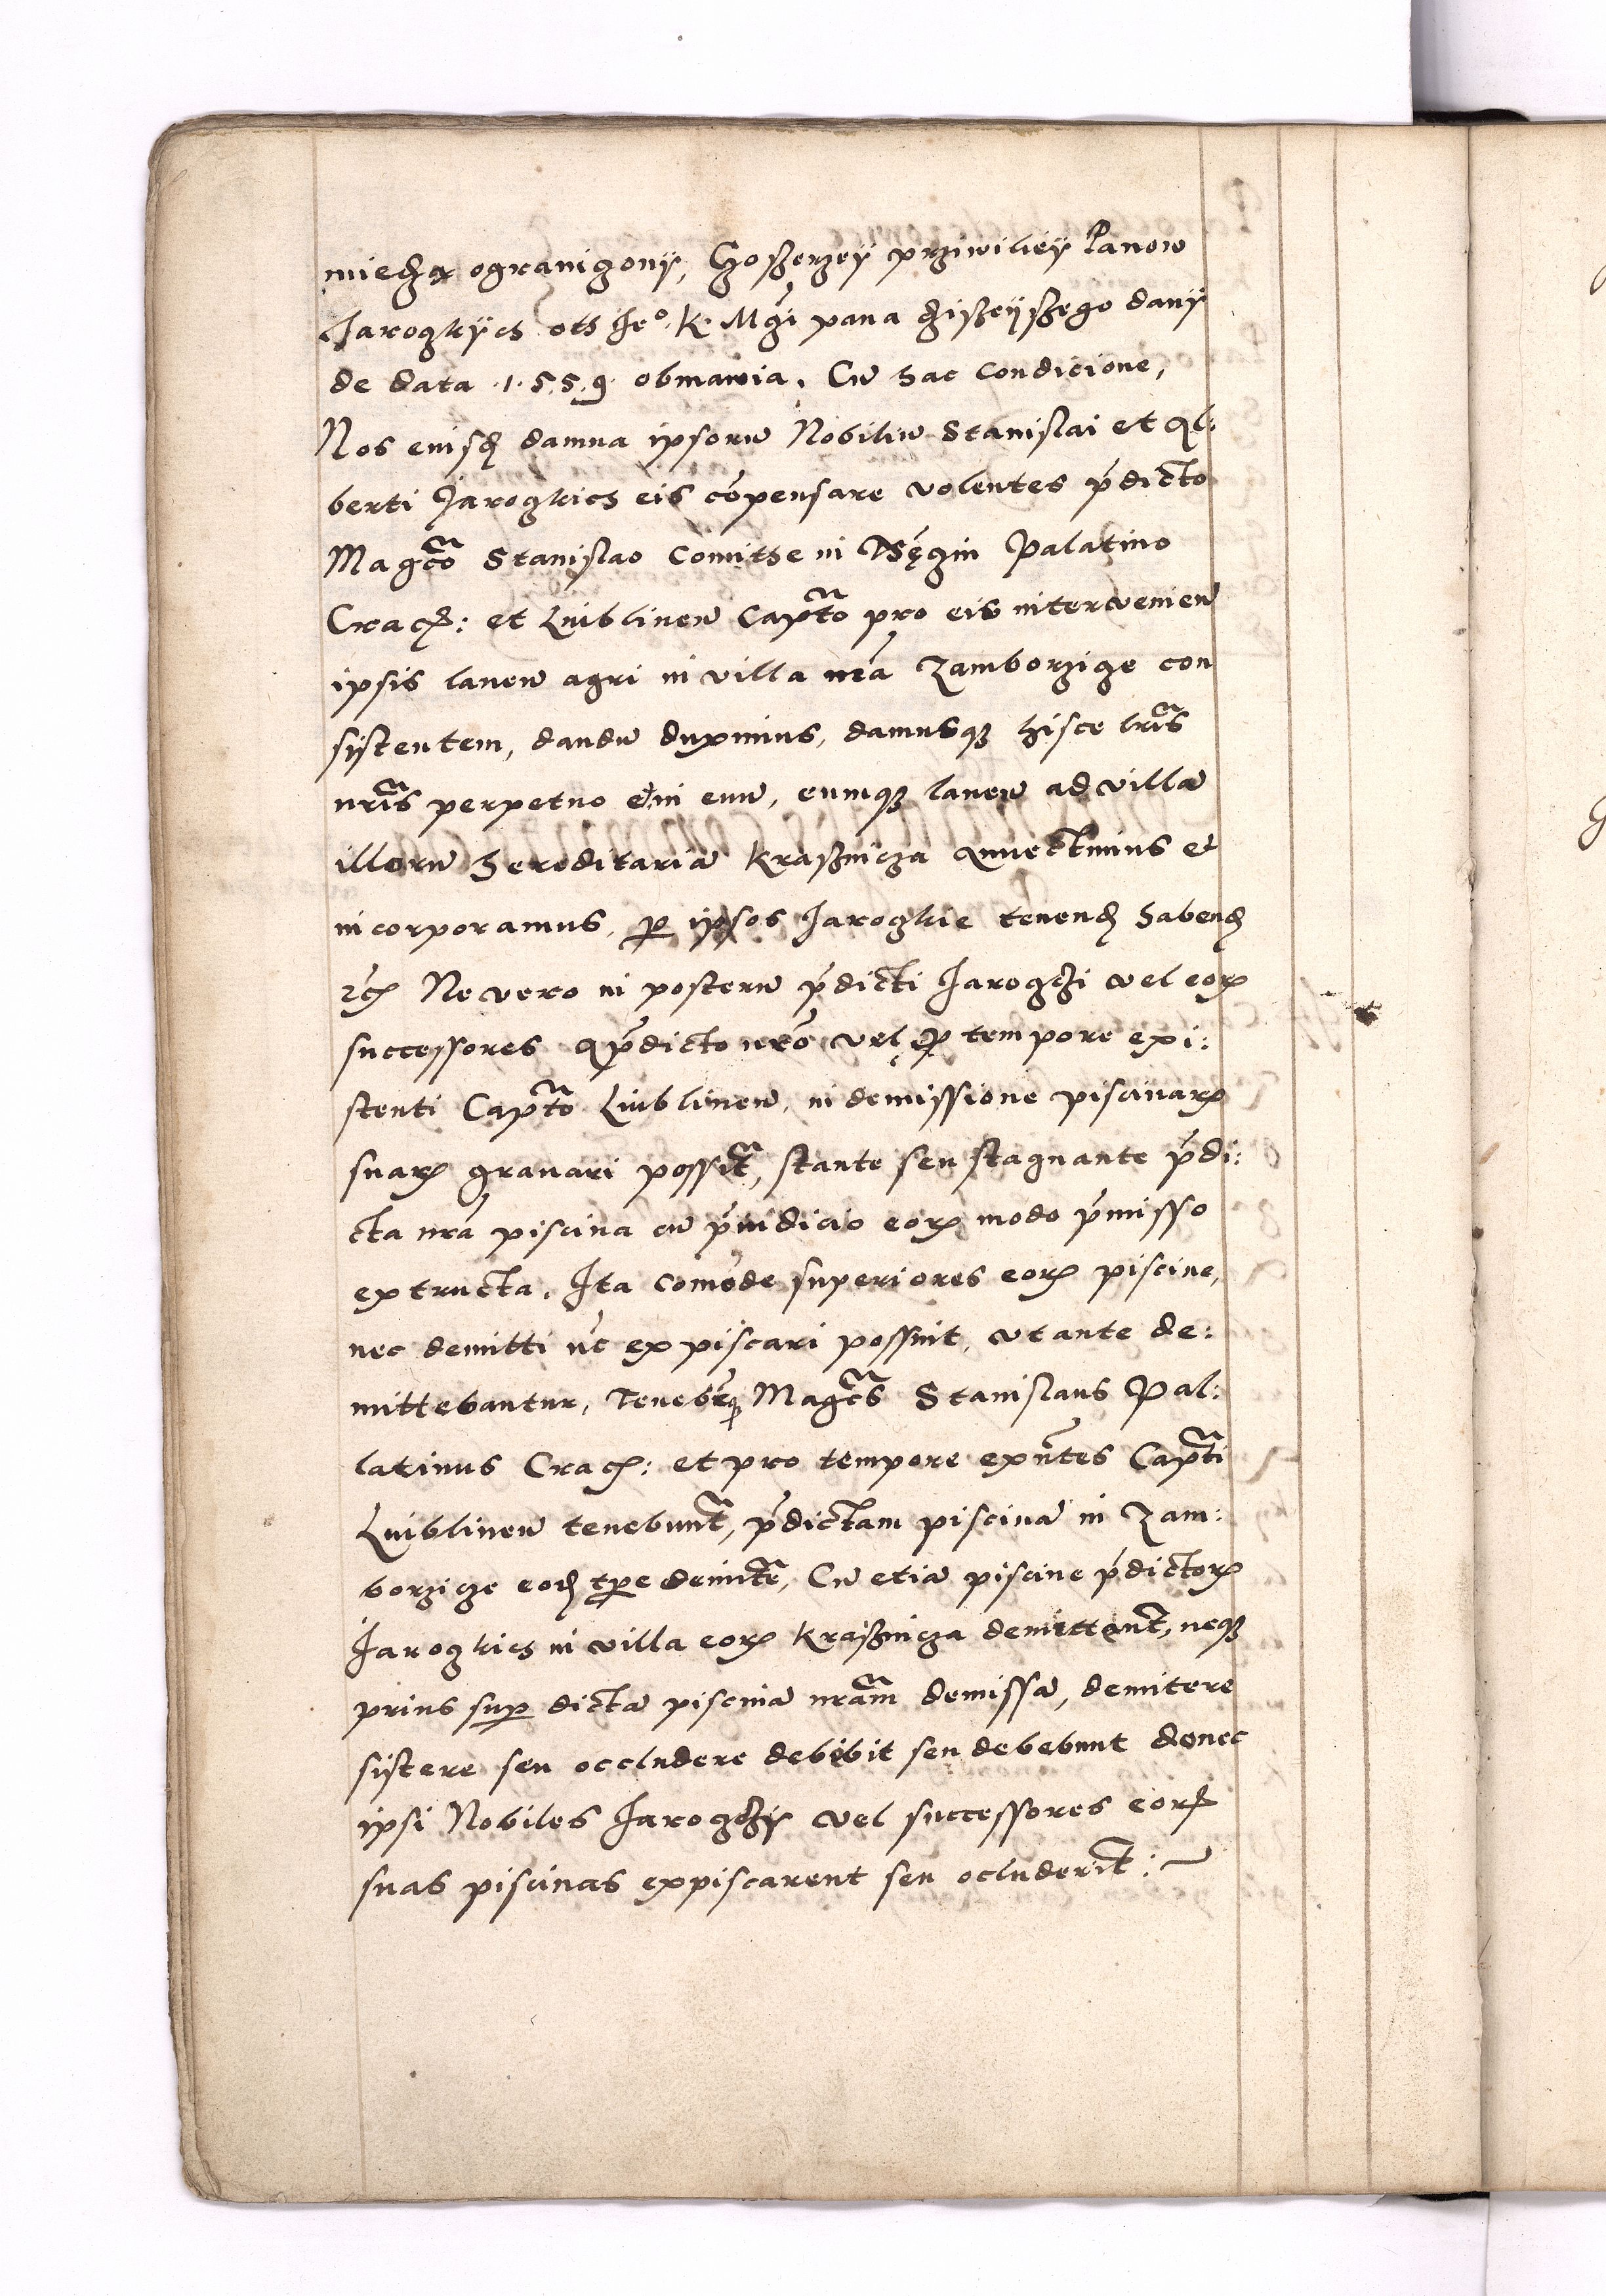 miedzą ograniczony, Czo szerzey prziwiliey Panow
Jaroczkych oth Jeo. K. Mczi pana dziszyejszego dany
de data .1.5.5.9. obmawia. Cu hac condicione,
Nos eiusd damna ipsoru Nobiliu Stanislai et Al:
berti Jaroczkich eis copensare volentes pdicto
Magco Stanislao Comithe in Thęczin Palatino
Crac: et Lublinen Capto pro eis intervenien
ipsis laneu agri in villa nra Zamborzicze con
sistentem, dandu duximus, damusq hisce lris
nris perpetuo et in euu, eumq laneu ad villa
illoru hereditaria Krasznicza annectimus et
incorporamus, p ipsos Jaroczkie tenend habend
etc Ne vero in posteru pdicti Jaroczci vel eor
successores a pdicto nro vel p tempore exi:
stenti Capto Lublinen, in demissione piscinar
suar gravari possit, stante seu stagnante pdi:
cta nra piscina cu piudicio eor modo pmisso
extructa. Ita comode superiores eor piscine,
nec demitti nec expiscari possint, ut ante de:
mittebantur, Tenebr Magcs Stanislaus Pal:
latinus Crac: et pro tempore exntes Capti
Lublinen tenebunt, pdictam piscina in Zam:
borzicze eod tpe demitte, Cu etia piscine pdictor
Jaroczkich in villa eor Krasznicza demittent, neq
prius sup dicta piscina nram demissa, demitere
sistere seu occludere debebit seu debebunt donec
ipsi Nobiles Jaroczci vel successores eor
suas piscinas expiscarent seu ocluderit: